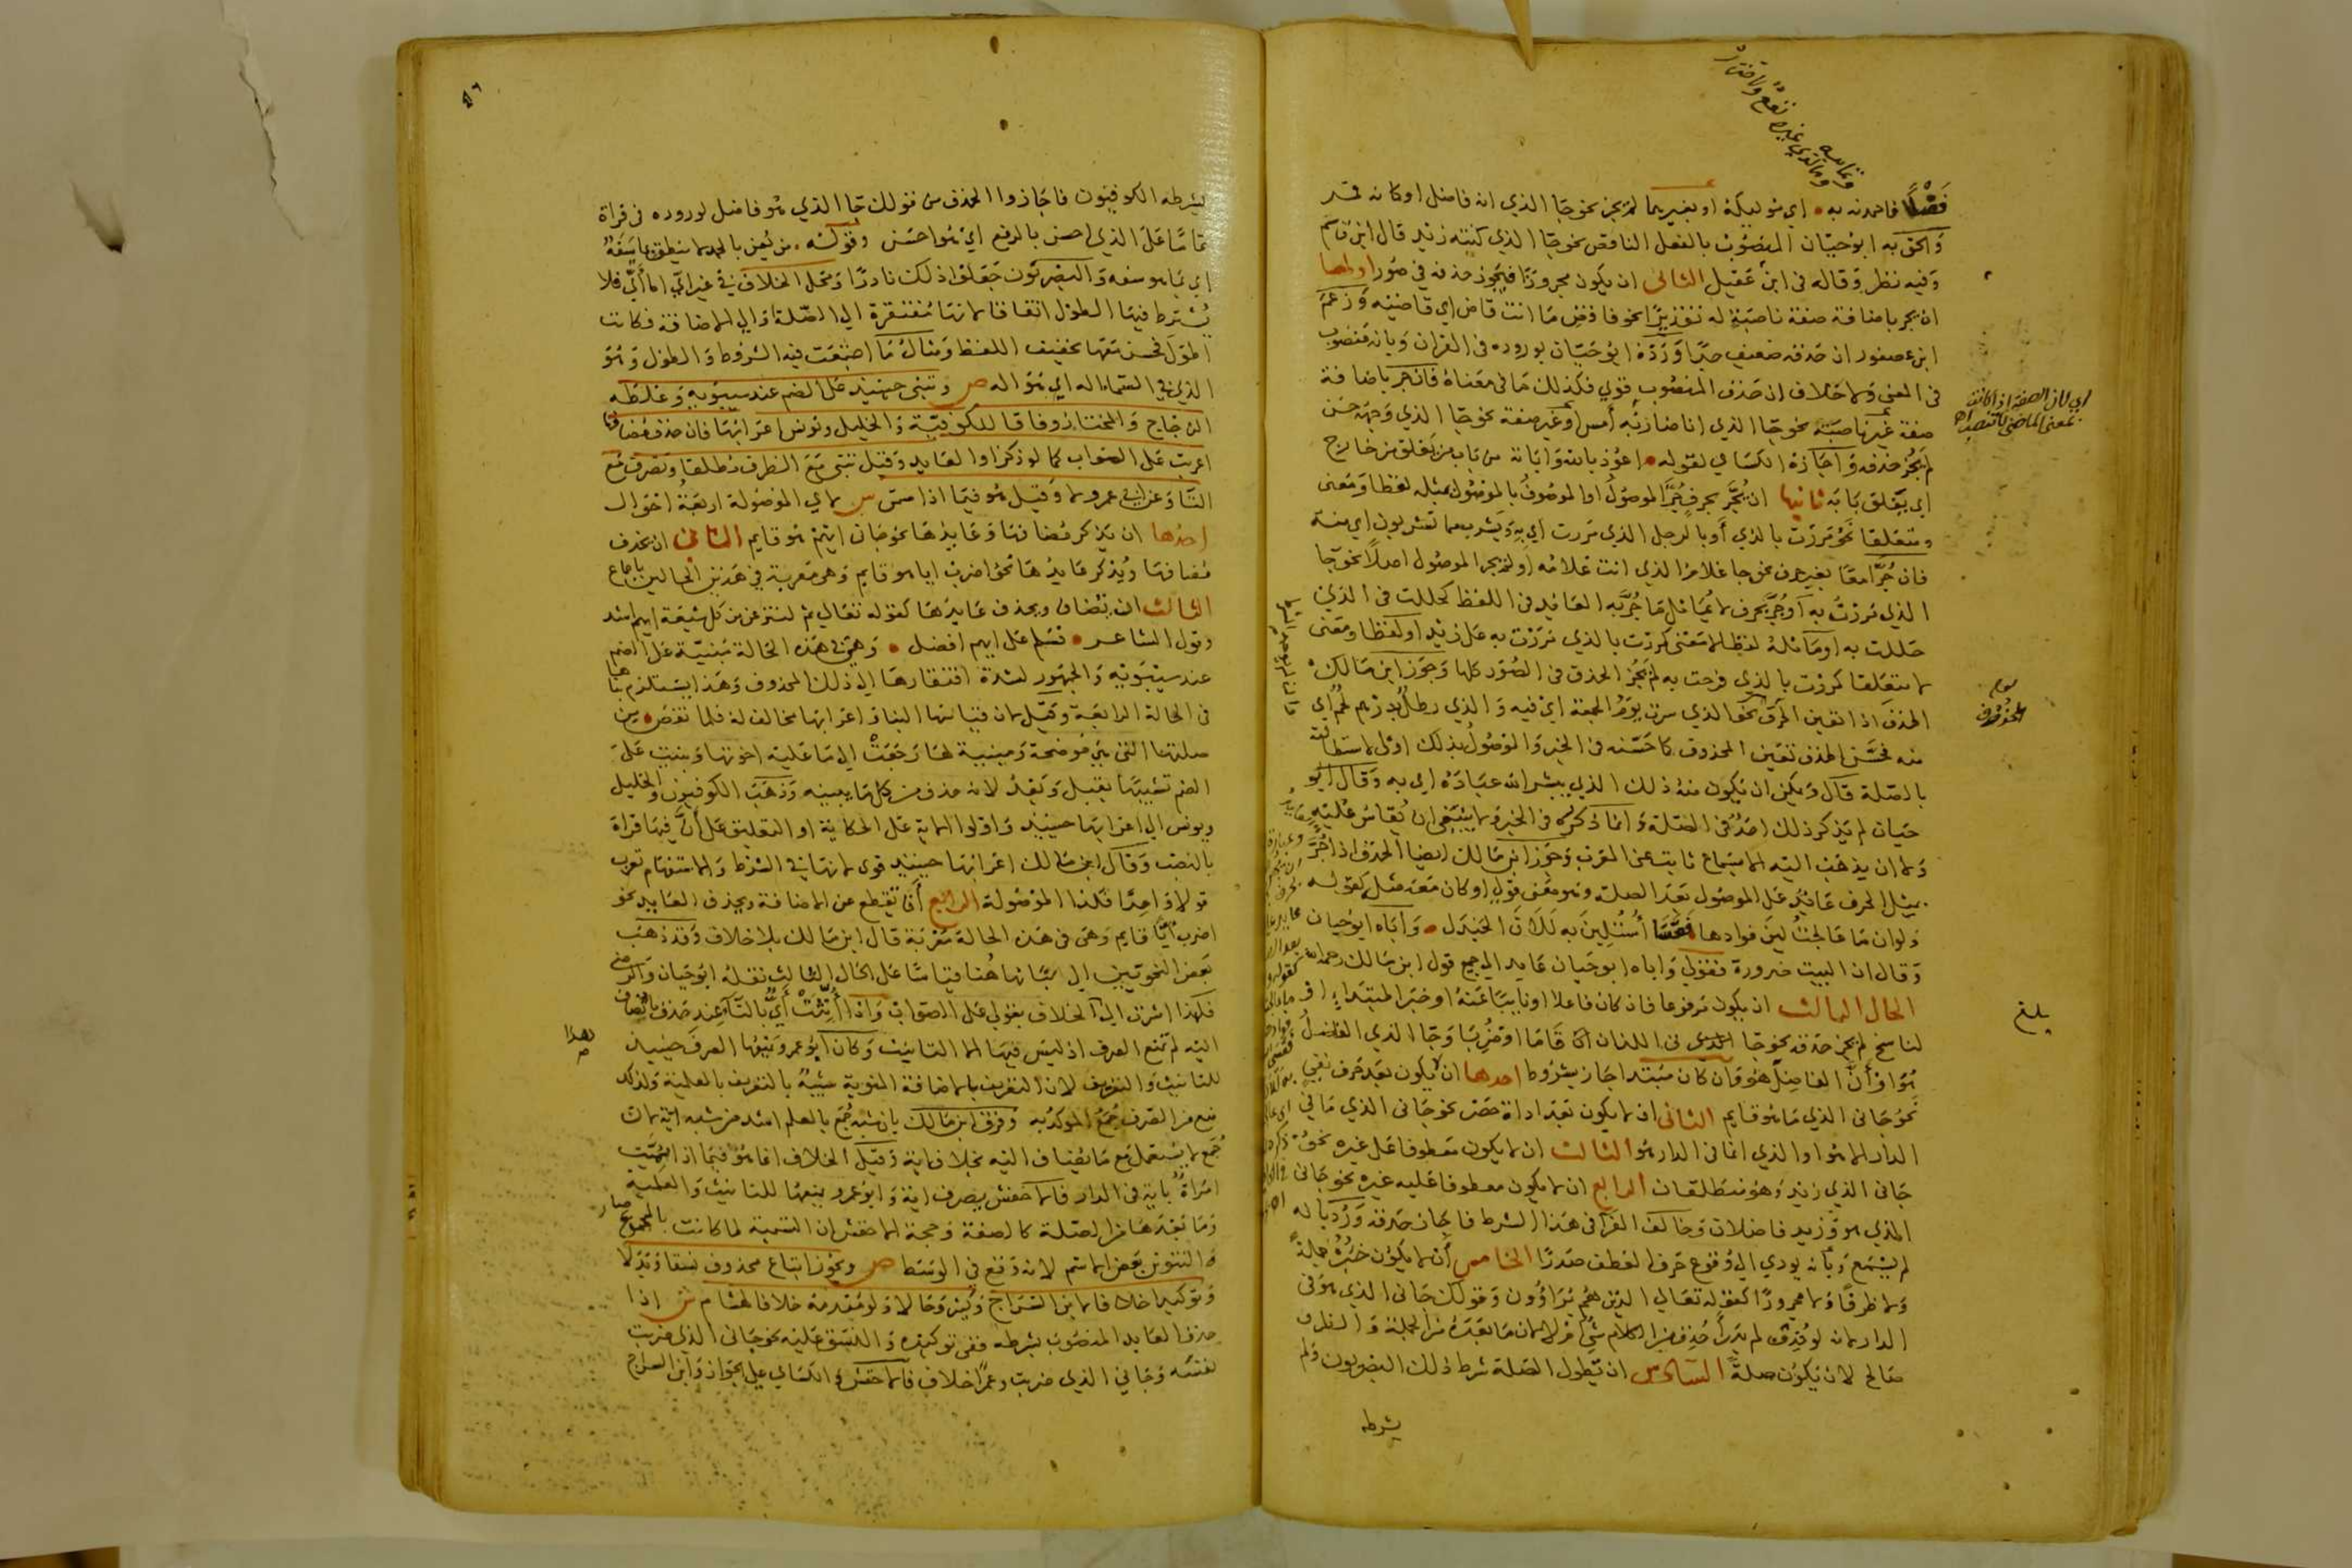 فَضْلًا فاحمدنه به اي موليكه او بغيرهما لم يجز نحو جا الذي انه فاضل او كانه قمر
والحق به ابو حيان المنصوب بالفعل الناقص نحو جا الذي كنته زيد قال ابن قاسم
وفيه نظر وقاله في ابن عقيل الثاني ان يكون مجرورا فيجوز حذفه في صور اولها
ان يجر باضافة صفة ناصبة له تقديرا نحو فاقض ما انت قاض اي قاضيه وزعم
ابن عصفور ان حذفه ضعيف جدا ورده ابو حيان بوروده في القران وبانه منصوب
في المعنى ولا خلاف ان حذف المنصوب قوي فكذلك ما في معناه فان جر باضافة
صفة غير ناصبة نحو جا الذي انا ضاربه أمس او غير صفة نحو جا الذي وجهه حسن
لم يجز حذفه واجازه الكساي لقوله اعوذ بالله وايانه من باب من يغلق من خارج
اي يغلق بابه ثانيها ان يُجَّر بحرف جُرَّ الموصول او الموصوف بالموصول بمثله لفظا ومعنى
ومتعلقا نحو مررت بالذي أو بالرجل الذي مررت اي به ويشرب مما تشربون اي منه
فان جُرَّا معا بغير حرف نحو جا غلام الذي انت غلامه او لم يجر الموصول اصلا نحو جا
الذي مررت به أو جُرَّ بحرف لا يُماثل ما جُرَّ به العايد في اللفظ كحللت في الذي
حللت به او ماثله لفظا لا معنى كمررت بالذي مررت به على زيد او لفظا ومعنى
لا متعلقا كمررت بالذي فرحت به لم يجز الحذف في الصور كلها وجوز ابن مالك
الحذف اذا تعين الحرف نحو الذي سرت يوم الجمعة اي فيه والذي رطل بدرهم لحم اي
منه فحسَّن الحذف تعين المحذوف كما حسنه في الخبر والموصول بذلك اولى لاستطالته
بالصلة قال ويمكن ان يكون منه ذلك الذي يبشر الله عباده اي به وقال ابو
حيان لم يذكر ذلك احد في الصلة وانما ذكر في الخبر ولا ينبغي ان يقاس عليه
ولا ان يذهب اليه الا بسماع ثابت عن العرب وجوز ابن مالك ايضا الحذف اذا جُرَّ
بمثل الحرف عائد على الموصول بعد الصلة وهو معنى قولي او كان معه مثل كقوله
ولو ان ما عالجتُ لينَ فوادها فقسَا أُستُلِينَ به لَلَانَ الجندل واباه ابو حيان
وقال ان البيت ضرورة فقولي واباه ابو حيان عايد الى جميع قول ابن مالك رحمه الله
الحال الثالث ان يكون مرفوعا فان كان فاعلا او نايبا عنه او خبرا لمبتدا او
لناسخ لم يجز حذفه نحو جا اللذان قاما او ضُرِبَا وجا الذي الفاضل
هو او أنَّ الفاضل هو وان كان مبتدا جاز بشروط احدها ان لا يكون بعد حرف نفي
نحو جاني الذي ما هو قايم الثاني ان لا يكون بعد اداة حصر نحو جاني الذي ما في
الدار الا هو او الذي انما في الدار هو الثالث ان لا يكون معطوفا على غيره نحو
جاني الذي زيد وهو منطلقان الرابع ان لا يكون معطوفا عليه غيره نحو جاني
الذي هو وزيد فاضلان وخالف الفرا في هذا الشرط فاجاز حذفه ورد بانه
لم يُسمع وبانه يودي الى وقوع حرف العطف صدرا الخامس أن لا يكون خبره جملة
ولا ظرفا ولا مجرورا كقوله تعالى الذين هم يراؤون وقولك جاني الذي هو في
الدار لانه لو حُذِف لم يُدرأ حُذِف من الكلام شي ام لا لان ما بعده من الجملة والظرف
صالح لان يكون صلة السادس ان تطول الصلة شرط ذلك البصريون ولم
يشرطه
وما الذي غيره نفع ولا ضرر
اي لان الصفة اذا كانت
بمعنى الماضي لا تنصب اهـ
بلغ
يشرطه الكوفيون فاجازوا الحذف من قولك جا الذي هو فاضل لوروده في قراة
تماما على الذي احسن بالرفع اي هو احسن وقوله من يُعن بالحمد لا ينطق بما سفه
اي بما هو سفه والبصريون جعلوا ذلك نادرا ومحل الخلاف في غير أيّ اما أيّ فلا
يُشترط فيها الطول اتفاقا لانها مفتقرة الى الصلة والى الاضافة فكانت
اطول فحسن معها تخفيف اللفظ ومثال ما اجتمعت فيه الشروط والطول وهو
الذي في السماء اله اي هو اله ص وتبنى حينيذ على الضم عند سيبويه وغلطه
الزجاج والمختار وفاقا للكوفية والخليل ويونس اعرابها فان حذف مضافها
اعربت على الصواب كما لو ذكرا والعايد وقيل تبنى مع الظرف مطلقا وتصرف مع
التا وعن ابي عمرو لا وقيل هو فيما اذا سمى ش لاي الموصولة اربعة احوال
احدها ان يذكر مضافها وعايدها نحو جاني ايهم هو قايم الثاني ان يحذف
مضافها ويُذكر عايدها نحو اضرب ايا هو قايم وهي معربة في هذين الحالين باجماع
الثالث ان تضاف ويحذف عايدها كقوله تعالى ثم لننزعن من كل شيعة ايهم اشد
وقول الشاعر فسلم على ايهم افضل وهي في هذه الحالة مبنية على الضم
عند سيبويه والجمهور لشدة افتقارها الى ذلك المحذوف وهذا يستلزم بناها
في الحالة الرابعة وقيل لان قياسها البنا واعرابها مخالف له فلما نقص من
صلتها التي هي موضحة ومبينة لها رجعتْ الى ما عليه اخوتها وبنيت على
الضم تشبيها بقبل وبعدُ لانه حذف من كل ما يبينه وذهب الكوفيون والخليل
ويونس الى اعرابها حينيذ واولوا الاية على الحكاية او التعليق على أنَّ فيها قراة
بالنصب وقال ابن مالك اعرابها حينيذ قوى لانها في الشرط والاستفهام تعرب
قولا واحدا فكذا الموصولة الرابع أن تقطع عن الاضافة ويحذف العايد نحو
اضرب أيّا قايم وهي في هذه الحالة معربة قال ابن مالك بلا خلاف وقد ذهب
بعض النحويين الى بنايها هُنا قياسا على الحال الثالث نقله ابو حيان والرضى
فلهذا اشرت الى الخلاف بقولي على الصواب وإذا أُنّثتْ أيّ بالتاء عند حذف ما تضاف
اليه لم تمنع الصرف اذ ليس فيها الا التانيث وكان ابو عمرو يمنعها الصرف حينيذ
للتانيث والتعريف لان التعريف بالاضافة المنوية شبيه بالتعريف بالعلمية ولذلك
منع من الصرف جُمَعُ الموكد به وفرق ابن مالك بان شبه جُمَع بالعلم اشد من شبه اية لان
جُمَع لا يستعمل مع ما يضاف اليه بخلاف اية وقيل الخلاف انما هو فيما اذا سُمِّيت
امراةٌ باية في الدار فالاخفش يصرف اية وابو عمرو يمنعها للتانيث والعلمية
وما بعدها من الصلة كالصفة وحجة الاخفش ان التسمية لما كانت بالمجموع صار
التنوين بعض الاسم لانه وقع في الوسط ص ويجوز اتباع محذوف نسقا وبدلا
وتوكيدا خلافا لابن السراج وكثير وحالا ولو مقدمة خلافا لهشام ش اذا
حذف العايد المنصوب بشرطه ففي توكيده والنسق عليه نحو جاني الذي ضربت
نفسه وجاني الذي ضربت وعمرا خلاف فالاخفش والكساي على الجواز وابن السراج